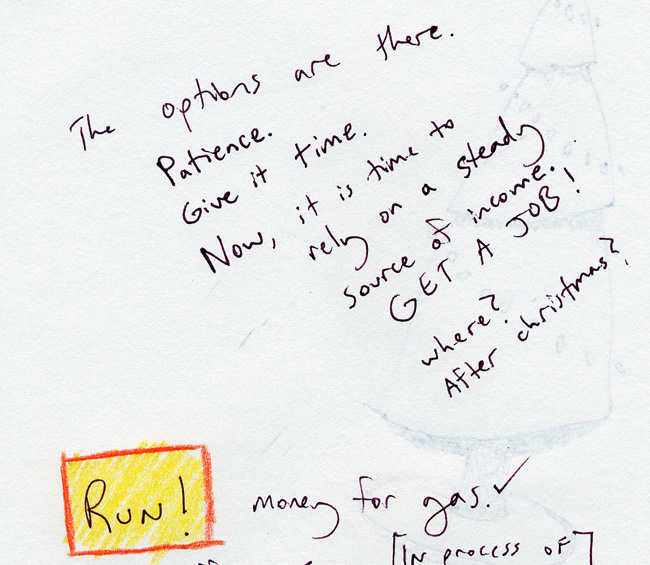 The options are there.
Patience.
Give it time.
Now, it is time to
rely on a steady
source of income.
GET A JOB!
where?
After christmas?
RUN! money for gas. ✓
[IN process OF]